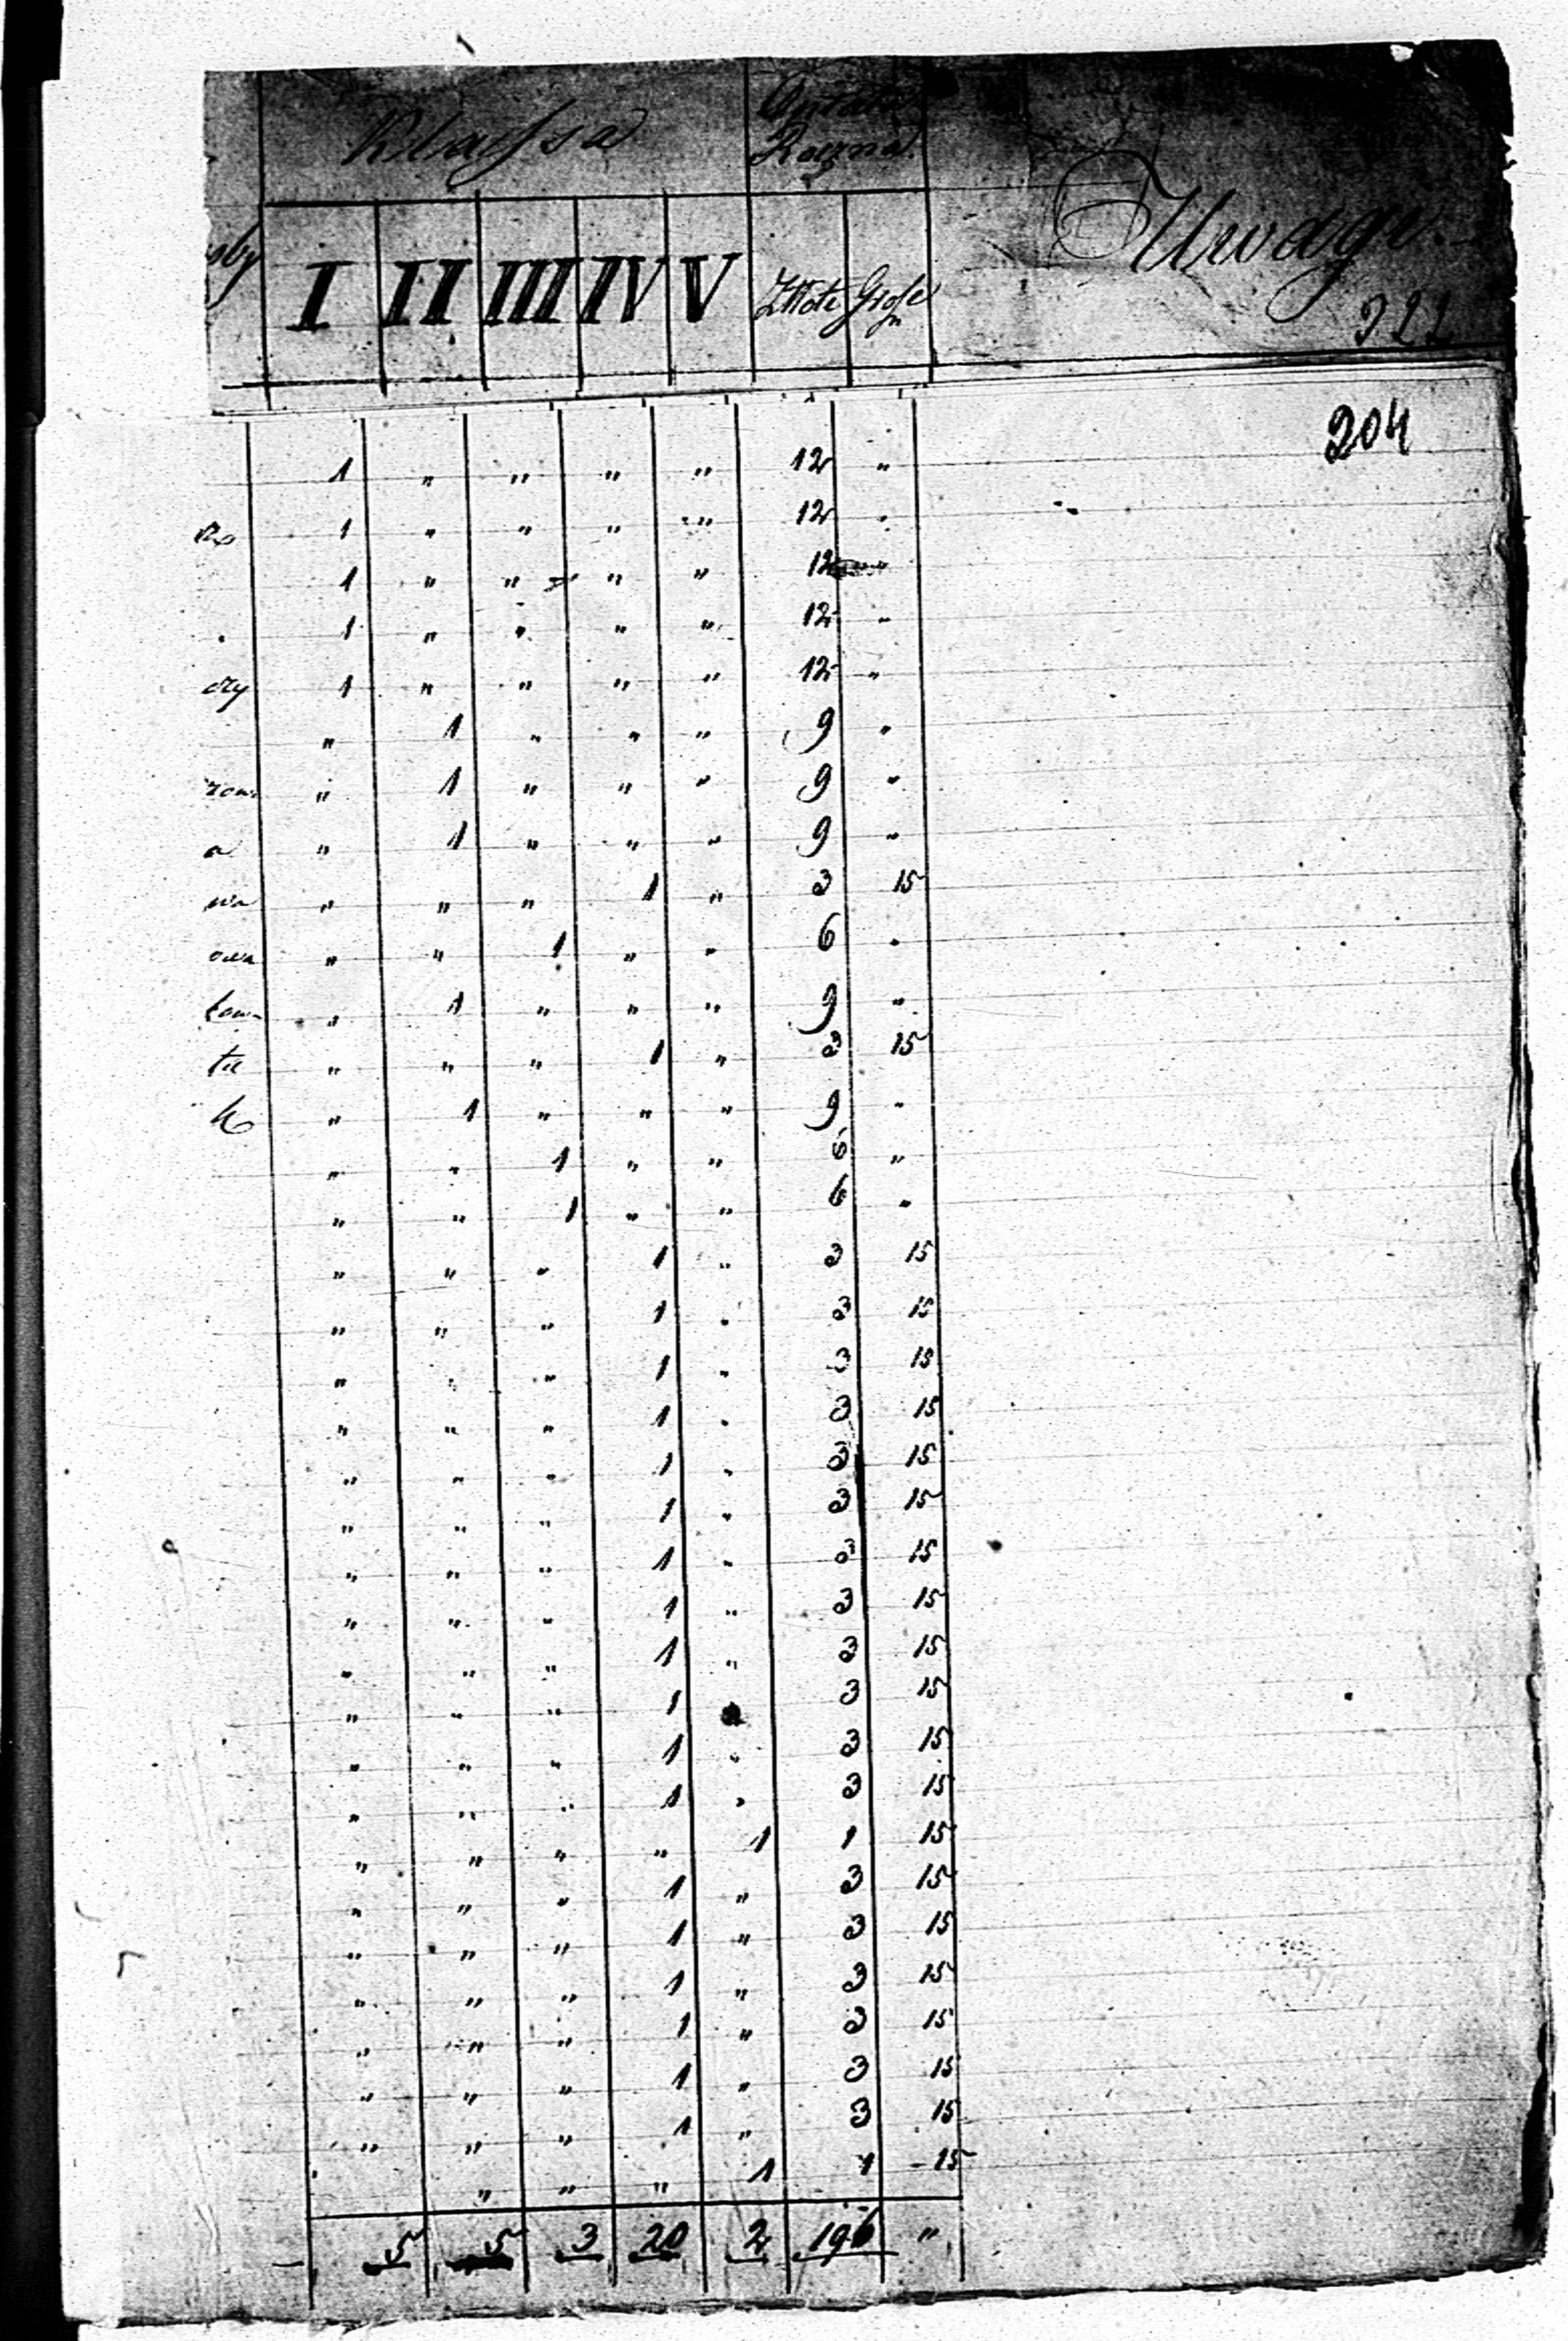 Klassa Opłata Roczna Uwagi.
I II III IV V Złote Grosze
204
1 " " " " 12 "
1 " " " " 12 "
1 " " " " 12 "
1 " " " " 12 "
1 " " " " 12 "
" 1 " " " 9 "
" 1 " " " 9 "
a " 1 " " " 9 "
wa " " " 1 " 3 15
owa " " 1 " " 6 "
" 1 " " " 9 "
" " " 1 " 3 15
" 1 " " " 9 "
" " 1 " " 6 "
" " 1 " " 6 "
" " " 1 " 3 15
" " " 1 " 3 15
" " " 1 " 3 15
" " " 1 " 3 15
" " " 1 " 3 15
" " " 1 " 3 15
" " " 1 " 3 15
" " " 1 " 3 15
" " " 1 " 3 15
" " " 1 3 15
" " " 1 " 3 15
" " " 1 " 3 15
" " " " 1 1 15
" " " 1 " 3 15
" " " 1 " 3 15
" " " 1 " 3 15
" " " 1 " 3 15
" " " 1 " 3 15
" " " 1 " 3 15
" " " 1 1 15
5 5 3 20 2 196 "